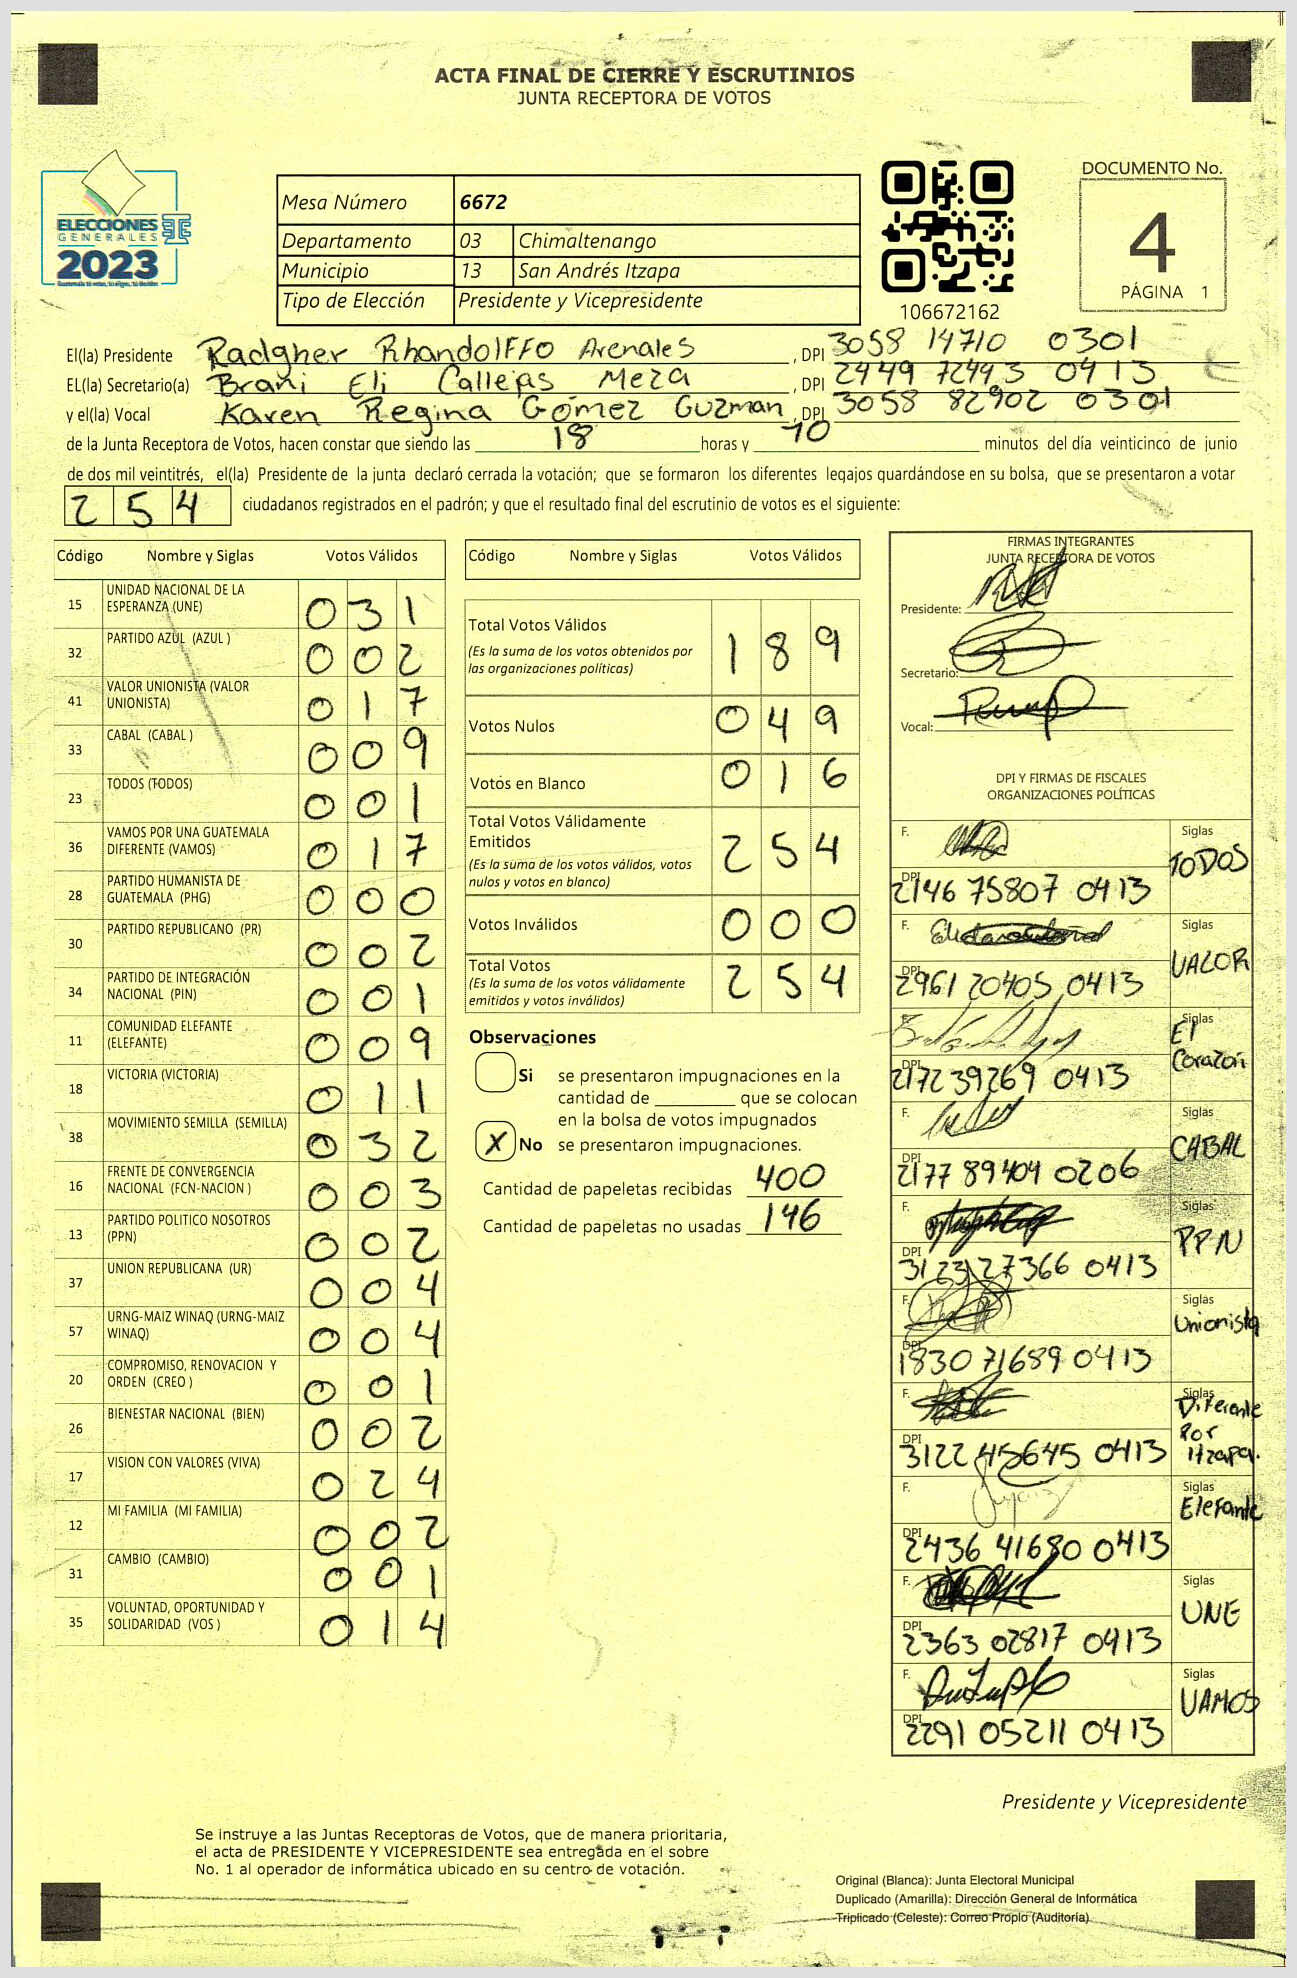 ACTA FINAL DE CIERRE Y ESCRUTINIOS
JUNTA RECEPTORA DE VOTOS
ELECCIONES
GENERALES
2023
Mesa Número 6672
Departamento 03 Chimaltenango
Municipio 13 San Andrés Itzapa
Tipo de Elección Presidente y Vicepresidente
106672162
DOCUMENTO No.
4
PÁGINA 1
El(la) Presidente Radgher Rhandolffo Arenales , DPI 3058 14710 0301
EL(la) Secretario(a) Brani Eli Callejas Meza , DPI 2449 72443 0413
y el(la) Vocal Karen Regina Gómez Guzman , DPI 3058 82902 0301
de la Junta Receptora de Votos, hacen constar que siendo las 18 horas y 10 minutos del día veinticinco de junio
de dos mil veintitrés, el(la) Presidente de la junta declaró cerrada la votación; que se formaron los diferentes legajos quardándose en su bolsa, que se presentaron a votar
254 ciudadanos registrados en el padrón; y que el resultado final del escrutinio de votos es el siguiente:
Código Nombre y Siglas Votos Válidos
15 UNIDAD NACIONAL DE LA ESPERANZA (UNE) 031
32 PARTIDO AZUL (AZUL ) 002
41 VALOR UNIONISTA (VALOR UNIONISTA) 017
33 CABAL (CABAL ) 009
23 TODOS (TODOS) 001
36 VAMOS POR UNA GUATEMALA DIFERENTE (VAMOS) 017
28 PARTIDO HUMANISTA DE GUATEMALA (PHG) 000
30 PARTIDO REPUBLICANO (PR) 002
34 PARTIDO DE INTEGRACIÓN NACIONAL (PIN) 001
11 COMUNIDAD ELEFANTE (ELEFANTE) 009
18 VICTORIA (VICTORIA) 011
38 MOVIMIENTO SEMILLA (SEMILLA) 032
16 FRENTE DE CONVERGENCIA NACIONAL (FCN-NACION ) 003
13 PARTIDO POLITICO NOSOTROS (PPN) 002
37 UNION REPUBLICANA (UR) 004
57 URNG-MAIZ WINAQ (URNG-MAIZ WINAQ) 004
20 COMPROMISO, RENOVACION Y ORDEN (CREO ) 001
26 BIENESTAR NACIONAL (BIEN) 002
17 VISION CON VALORES (VIVA) 024
12 MI FAMILIA (MI FAMILIA) 002
31 CAMBIO (CAMBIO) 001
35 VOLUNTAD, OPORTUNIDAD Y SOLIDARIDAD (VOS ) 014
Código Nombre y Siglas Votos Válidos
Total Votos Válidos 189
(Es la suma de los votos obtenidos por
las organizaciones políticas)
Votos Nulos 049
Votos en Blanco 016
Total Votos Válidamente
Emitidos 254
(Es la suma de los votos válidos, votos
nulos y votos en blanco)
Votos Inválidos 000
Total Votos 254
(Es la suma de los votos válidamente
emitidos y votos inválidos)
Observaciones
Si se presentaron impugnaciones en la
cantidad de que se colocan
en la bolsa de votos impugnados
X No se presentaron impugnaciones.
Cantidad de papeletas recibidas 400
Cantidad de papeletas no usadas 146
FIRMAS INTEGRANTES
JUNTA RECEPTORA DE VOTOS
Presidente:
Secretario:
Vocal:
DPI Y FIRMAS DE FISCALES
ORGANIZACIONES POLÍTICAS
F. Siglas TODOS
DPI 2146 75807 0413
F. Siglas VALOR
DPI 2961 20405 0413
F. Siglas El Corazón
DPI 2172 39269 0413
F. Siglas CABAL
DPI 2177 89404 0206
F. Siglas PPN
DPI 3123 27366 0413
F. Siglas Unionista
DPI 1830 71689 0413
F. Siglas Diferente Por Itzapa.
DPI 3122 45645 0413
F. Siglas Elefante
DPI 2436 41680 0413
F. Siglas UNE
DPI 2363 02817 0413
F. Siglas VAMOS
DPI 2291 05211 0413
Presidente y Vicepresidente
Se instruye a las Juntas Receptoras de Votos, que de manera prioritaria,
el acta de PRESIDENTE Y VICEPRESIDENTE sea entregada en el sobre
No. 1 al operador de informática ubicado en su centro de votación.
Original (Blanca): Junta Electoral Municipal
Duplicado (Amarilla): Dirección General de Informática
Triplicado (Celeste): Correo Propio (Auditoría)